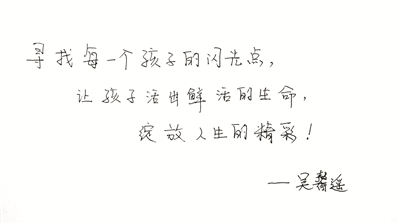 寻找每一个孩子的闪光点，
让孩子活出鲜活的生命，
绽放人生的精彩！
——吴馨遥